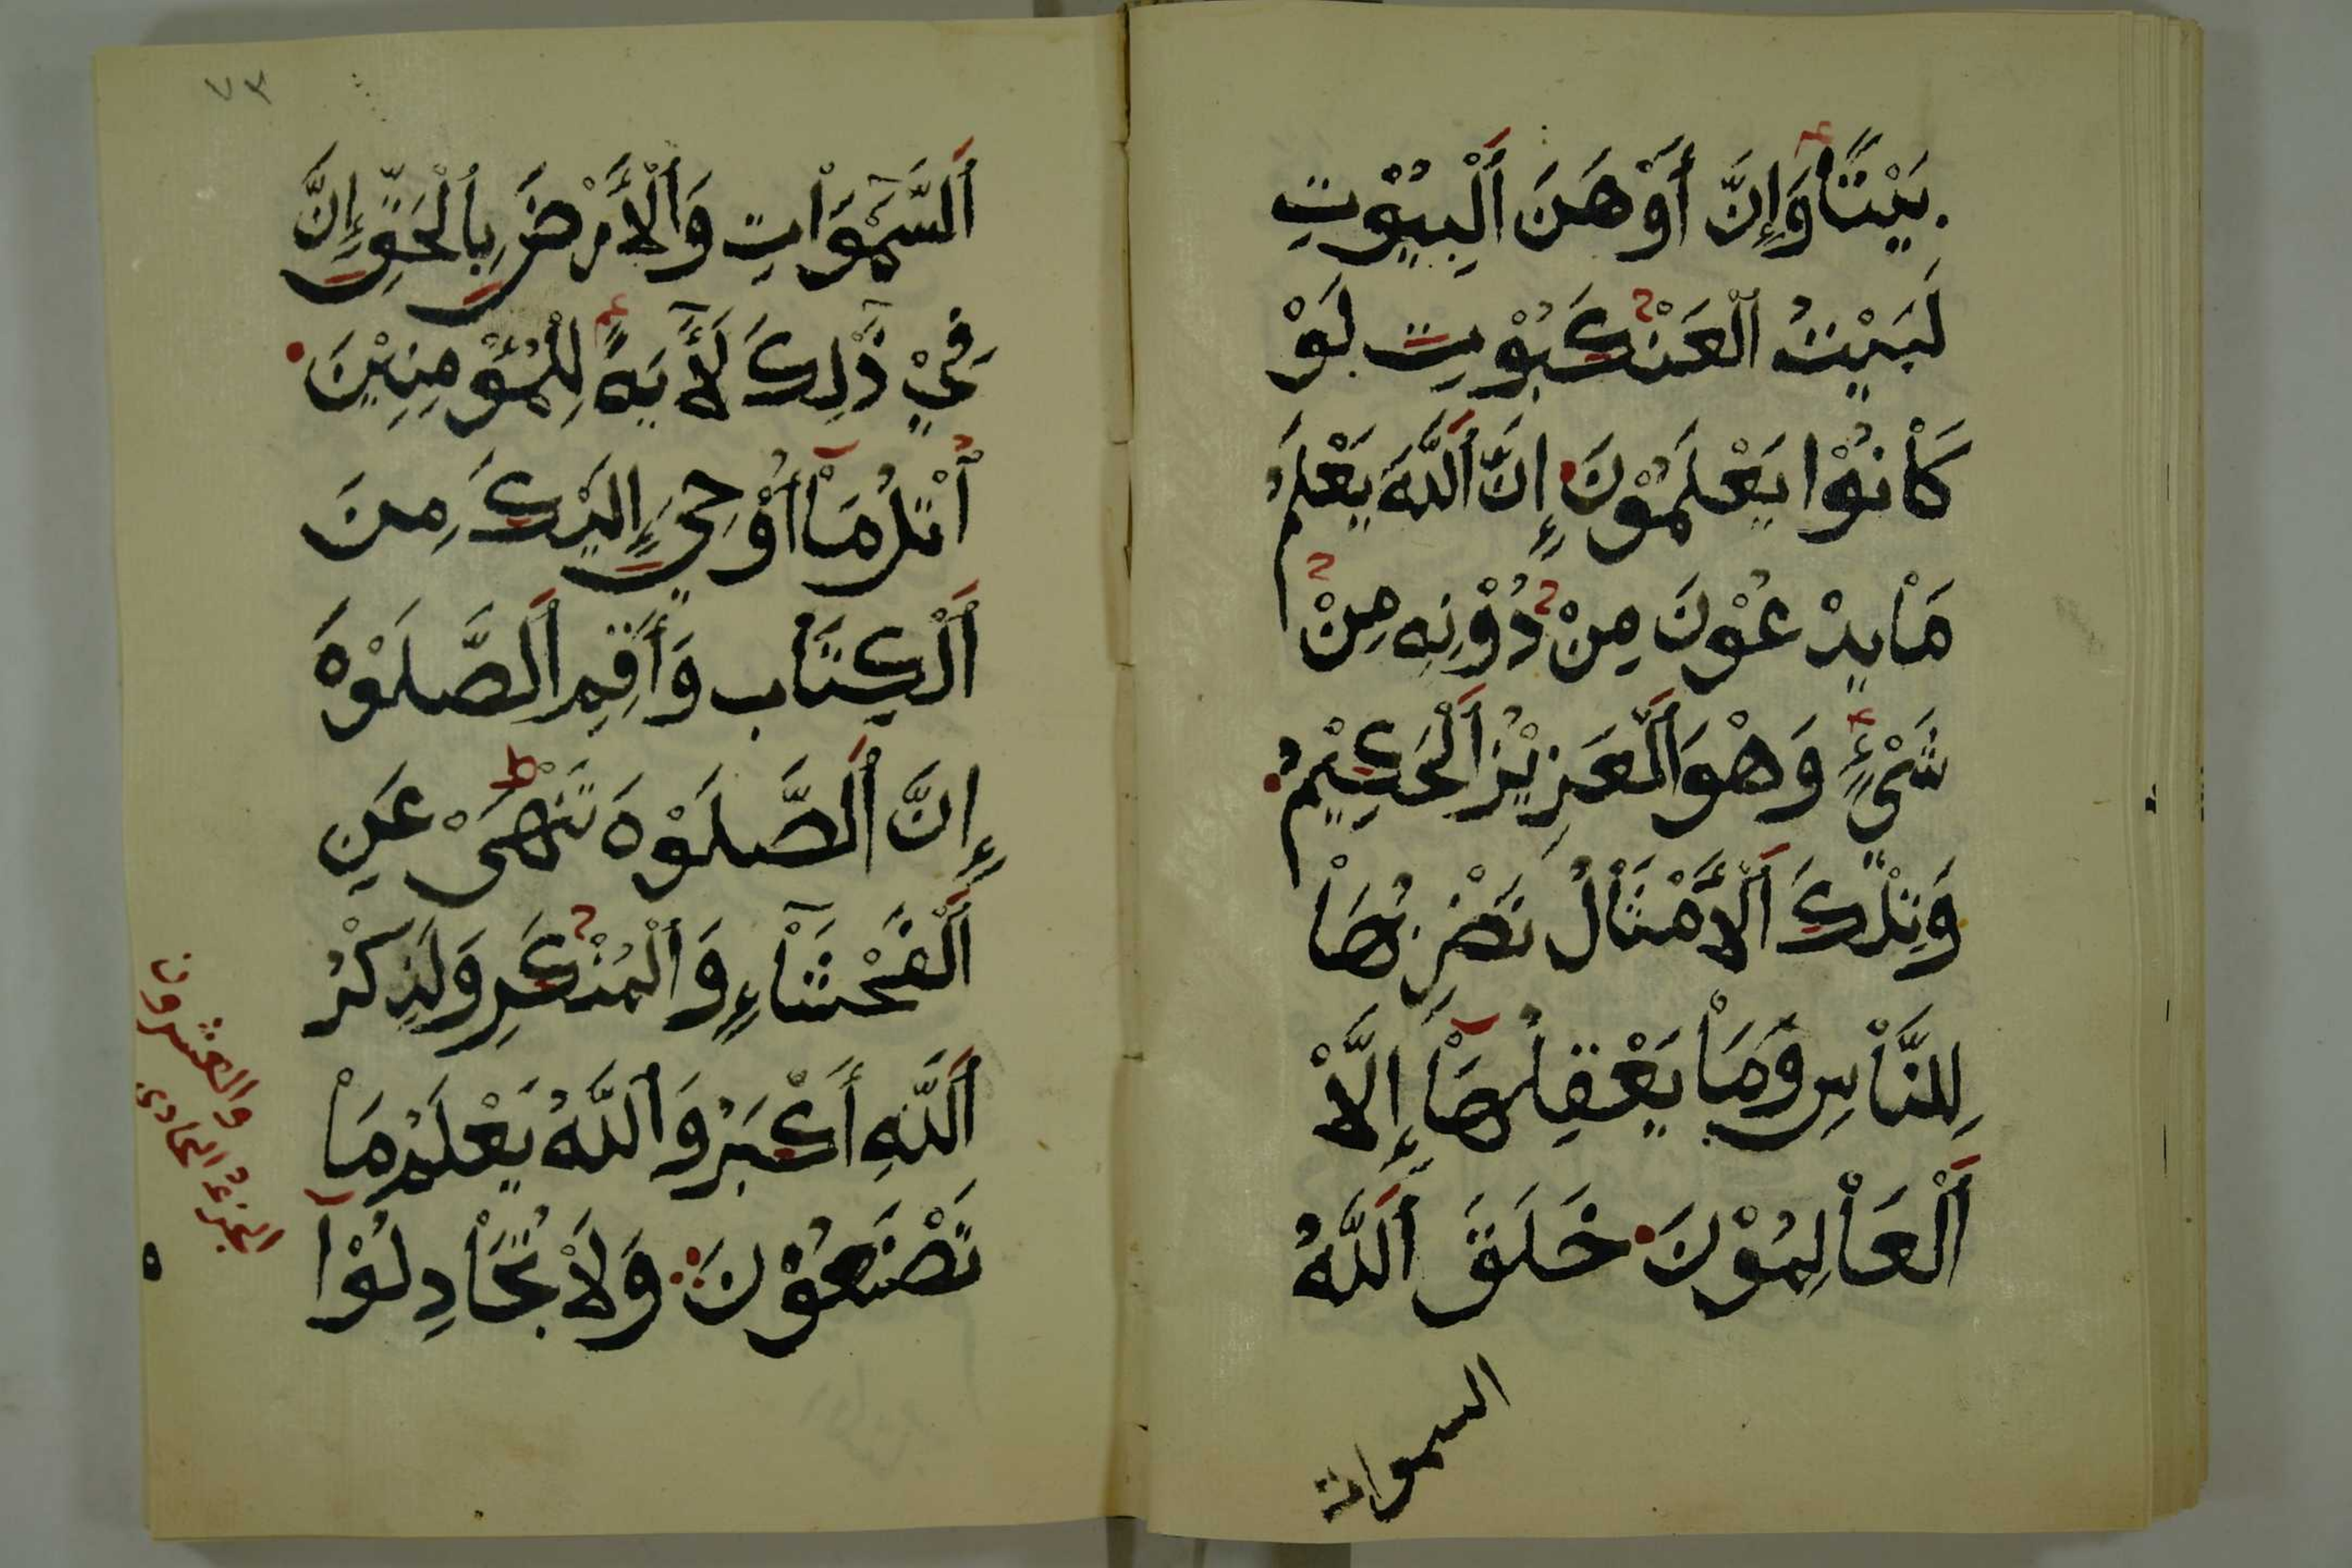 بَيْتًا وَإِنَّ أَوْهَنَ ٱلْبُيُوْتِ
لَبَيْتُ ٱلْعَنْكَبُوْتِ لَوْ
كَاْنُوْا يَعْلَمُوْنَ إِنَّ ٱللَّهَ يَعْلَمُ
مَاْ يَدْعُوْنَ مِنْ دُوْنِهِ مِنْ
شَيْءٍ وَهْوَ ٱلْعَزِيْزُ ٱلْحَكِيْمُ
وَتِلْكَ ٱلْأَمْثَاْلُ نَضْرِبُهَاْ
لِلنَّاْسِ وَمَاْ يَعْقِلُهَاْ إِلَّاْ
ٱلْعَاْلِمُوْنَ خَلَقَ ٱللَّهُ
السموات
٧٣
ٱلسَّمَوَاْتِ وَٱلْأَرْضَ بِٱلْحَقِّ إِنَّ
فِيْ ذَٰلِكَ لَأٓيَةً لِلْمُؤْمِنِيْنَ
ٱتْلُ مَاْ أُوْحِيَ إِلَيْكَ مِنَ
ٱلْكِتَاْبِ وَأَقِمِ ٱلصَّلَوْةَ
إِنَّ ٱلصَّلَوْةَ تَنْهَىْ عَنِ
ٱلْفَحْشَاْءِ وَٱلْمُنْكَرِ وَلَذِكْرُ
ٱللَّهِ أَكْبَرُ وَٱللَّهُ يَعْلَمُ مَاْ
تَصْنَعُوْنَ وَلَاْ تُجَاْدِلُوْا
الجزء الحادي
والعشرون